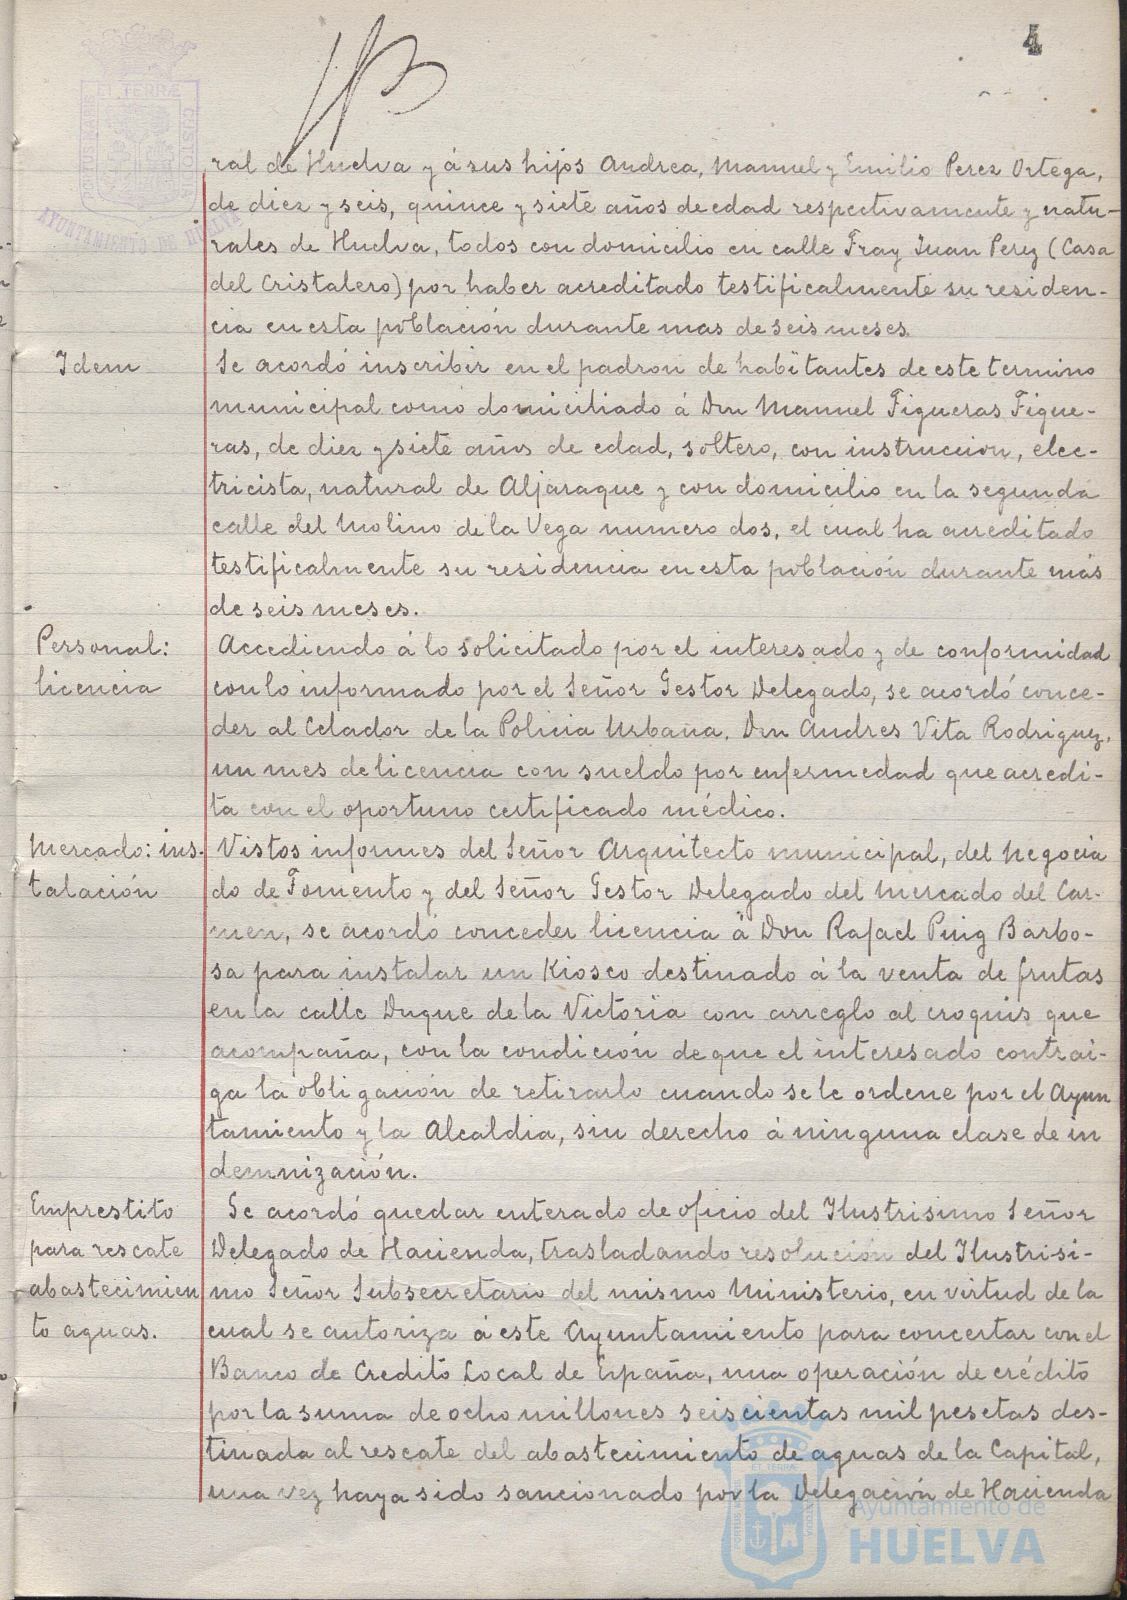 4
ET TERRÆ
PORTUS MARIS
CUSTO
AYUNTAMIENTO DE HUELVA
ral de Huelva y á sus hijos Andrea, Manuel y Emilio Perez Ortega,
de diez y seis, quince y siete años de edad respectivamente y natu-
rales de Huelva, todos con domicilio en calle Fray Juan Perez (Casa
del Cristalero) por haber acreditado testificalmente su residen-
cia en esta población durante mas de seis meses.
Idem
Se acordó inscribir en el padron de habitantes de este termino
municipal como domiciliado á Don Manuel Figueras Figue-
ras, de diez y siete años de edad, soltero, con instruccion, elec-
tricista, natural de Aljaraque y con domicilio en la segunda
calle del Molino de la Vega numero dos, el cual ha acreditado
testificalmente su residencia en esta población durante más
de seis meses.
Personal:
licencia
Accediendo á lo solicitado por el interesado y de conformidad
con lo informado por el Señor Gestor Delegado, se acordó conce-
der al Celador de la Policia Urbana, Don Andres Vita Rodriguez,
un mes de licencia con sueldo por enfermedad que acredi-
ta con el oportuno certificado médico.
Mercado: ins-
talación
Vistos informes del Señor Arquitecto municipal, del Negocia
do de Fomento y del Señor Gestor Delegado del Mercado del Car-
men, se acordó conceder licencia á Don Rafael Puig Barbo-
sa para instalar un Kiosco destinado á la venta de frutas
en la calle Duque de la Victoria con arreglo al croquis que
acompaña, con la condición de que el interesado contrai-
ga la obligación de retirarlo cuando se le ordene por el Ayun
tamiento y la Alcaldia, sin derecho á ninguna clase de in
demnización.
Emprestito
para rescate
abastecimien
to aguas.
Se acordó quedar enterado de oficio del Ilustrisimo Señor
Delegado de Hacienda, trasladando resolución del Ilustrisi-
mo Señor Subsecretario del mismo Ministerio, en virtud de la
cual se autoriza á este Ayuntamiento para concertar con el
Banco de Credito Local de España, una operación de crédito
por la suma de ocho millones seiscientas mil pesetas des-
tinada al rescate del abastecimiento de aguas de la Capital,
una vez haya sido sancionado por la Delegación de Hacienda
Ayuntamiento de
HUELVA